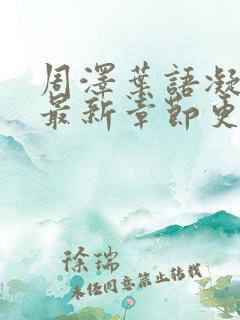 周澤葉語凝
最新章節更
徐瑞
未经同意禁止转载